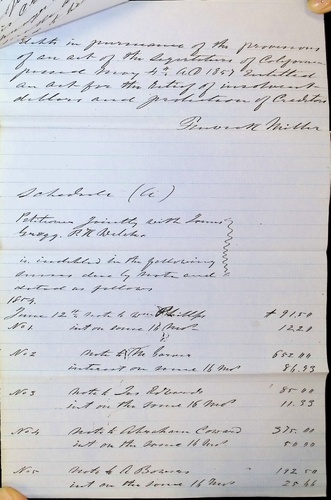 debts in pursuance of the provisions
of an act of the Legislature of California
passed May 4th A.D 1852 Entitled
an act for the relief of insolvent
debtors and protection of Creditors
Miller
Schedule (A)
Petitioner Jointly with James
Gregg. R H Welcher
is indebted in the following
sums due by note and
dated as follows
1854
June 12th note to Wm Phillips $ 91.50
No 1 int on same 16 mos 12.20
No 2 note to 652.00
interest on same 16 mos 86.93
No 3 note to Jas Edwards 85.00
int on the same 16 mos 11.33
No 4 note to Abraham Coward 375.00
int on the same 16 mos 50.00
No 5 note to A Bowers 192.50
int on the same 16 mos 25.66